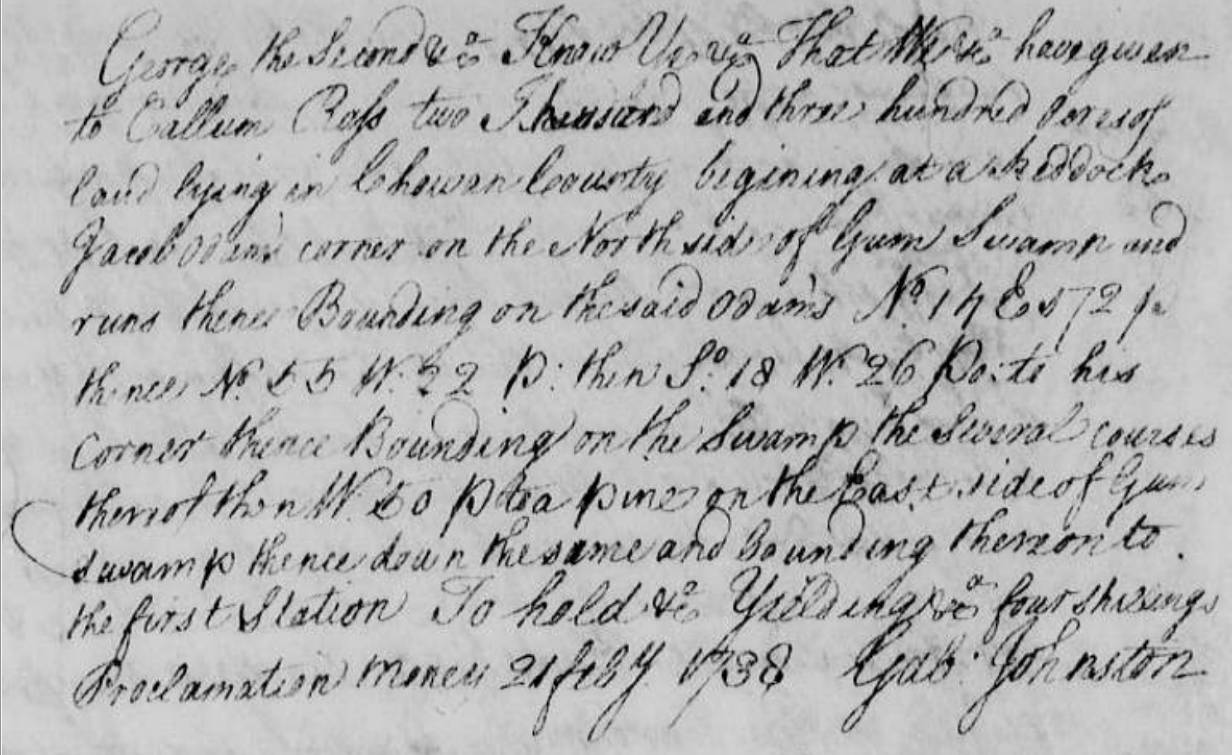 George the Second &ca Know Ye &ca That We &ca have given
to Callum Ross two Thousand and three hundred Acres of
land lying in Chowan County begining at a
Jacob Odam's corner on the North side of Gum Swamp and
runs thence Bounding on the said Odam's No. 14 E 572 p
thence No. 55 W. 22 P: then So. 18 W. 26 Po: to his
corner thence Bounding on the Swamp the several courses
thereof then W. 50 p to a pine on the East side of Gum
swamp thence down the same and bounding thereon to
the first Station To hold &ca Yielding &ca four shillings
Proclamation money 21 feby. 1738 Gab: Johnston